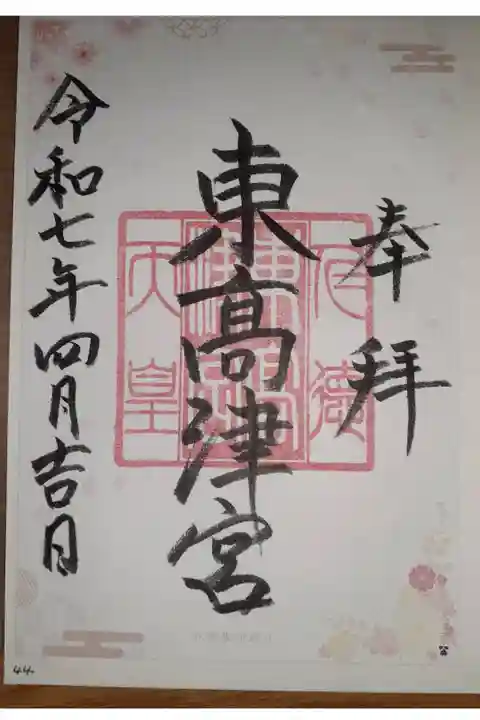 奉拝
東髙津宮
仁徳
東高津宮
天皇
令和七年四月吉日
44